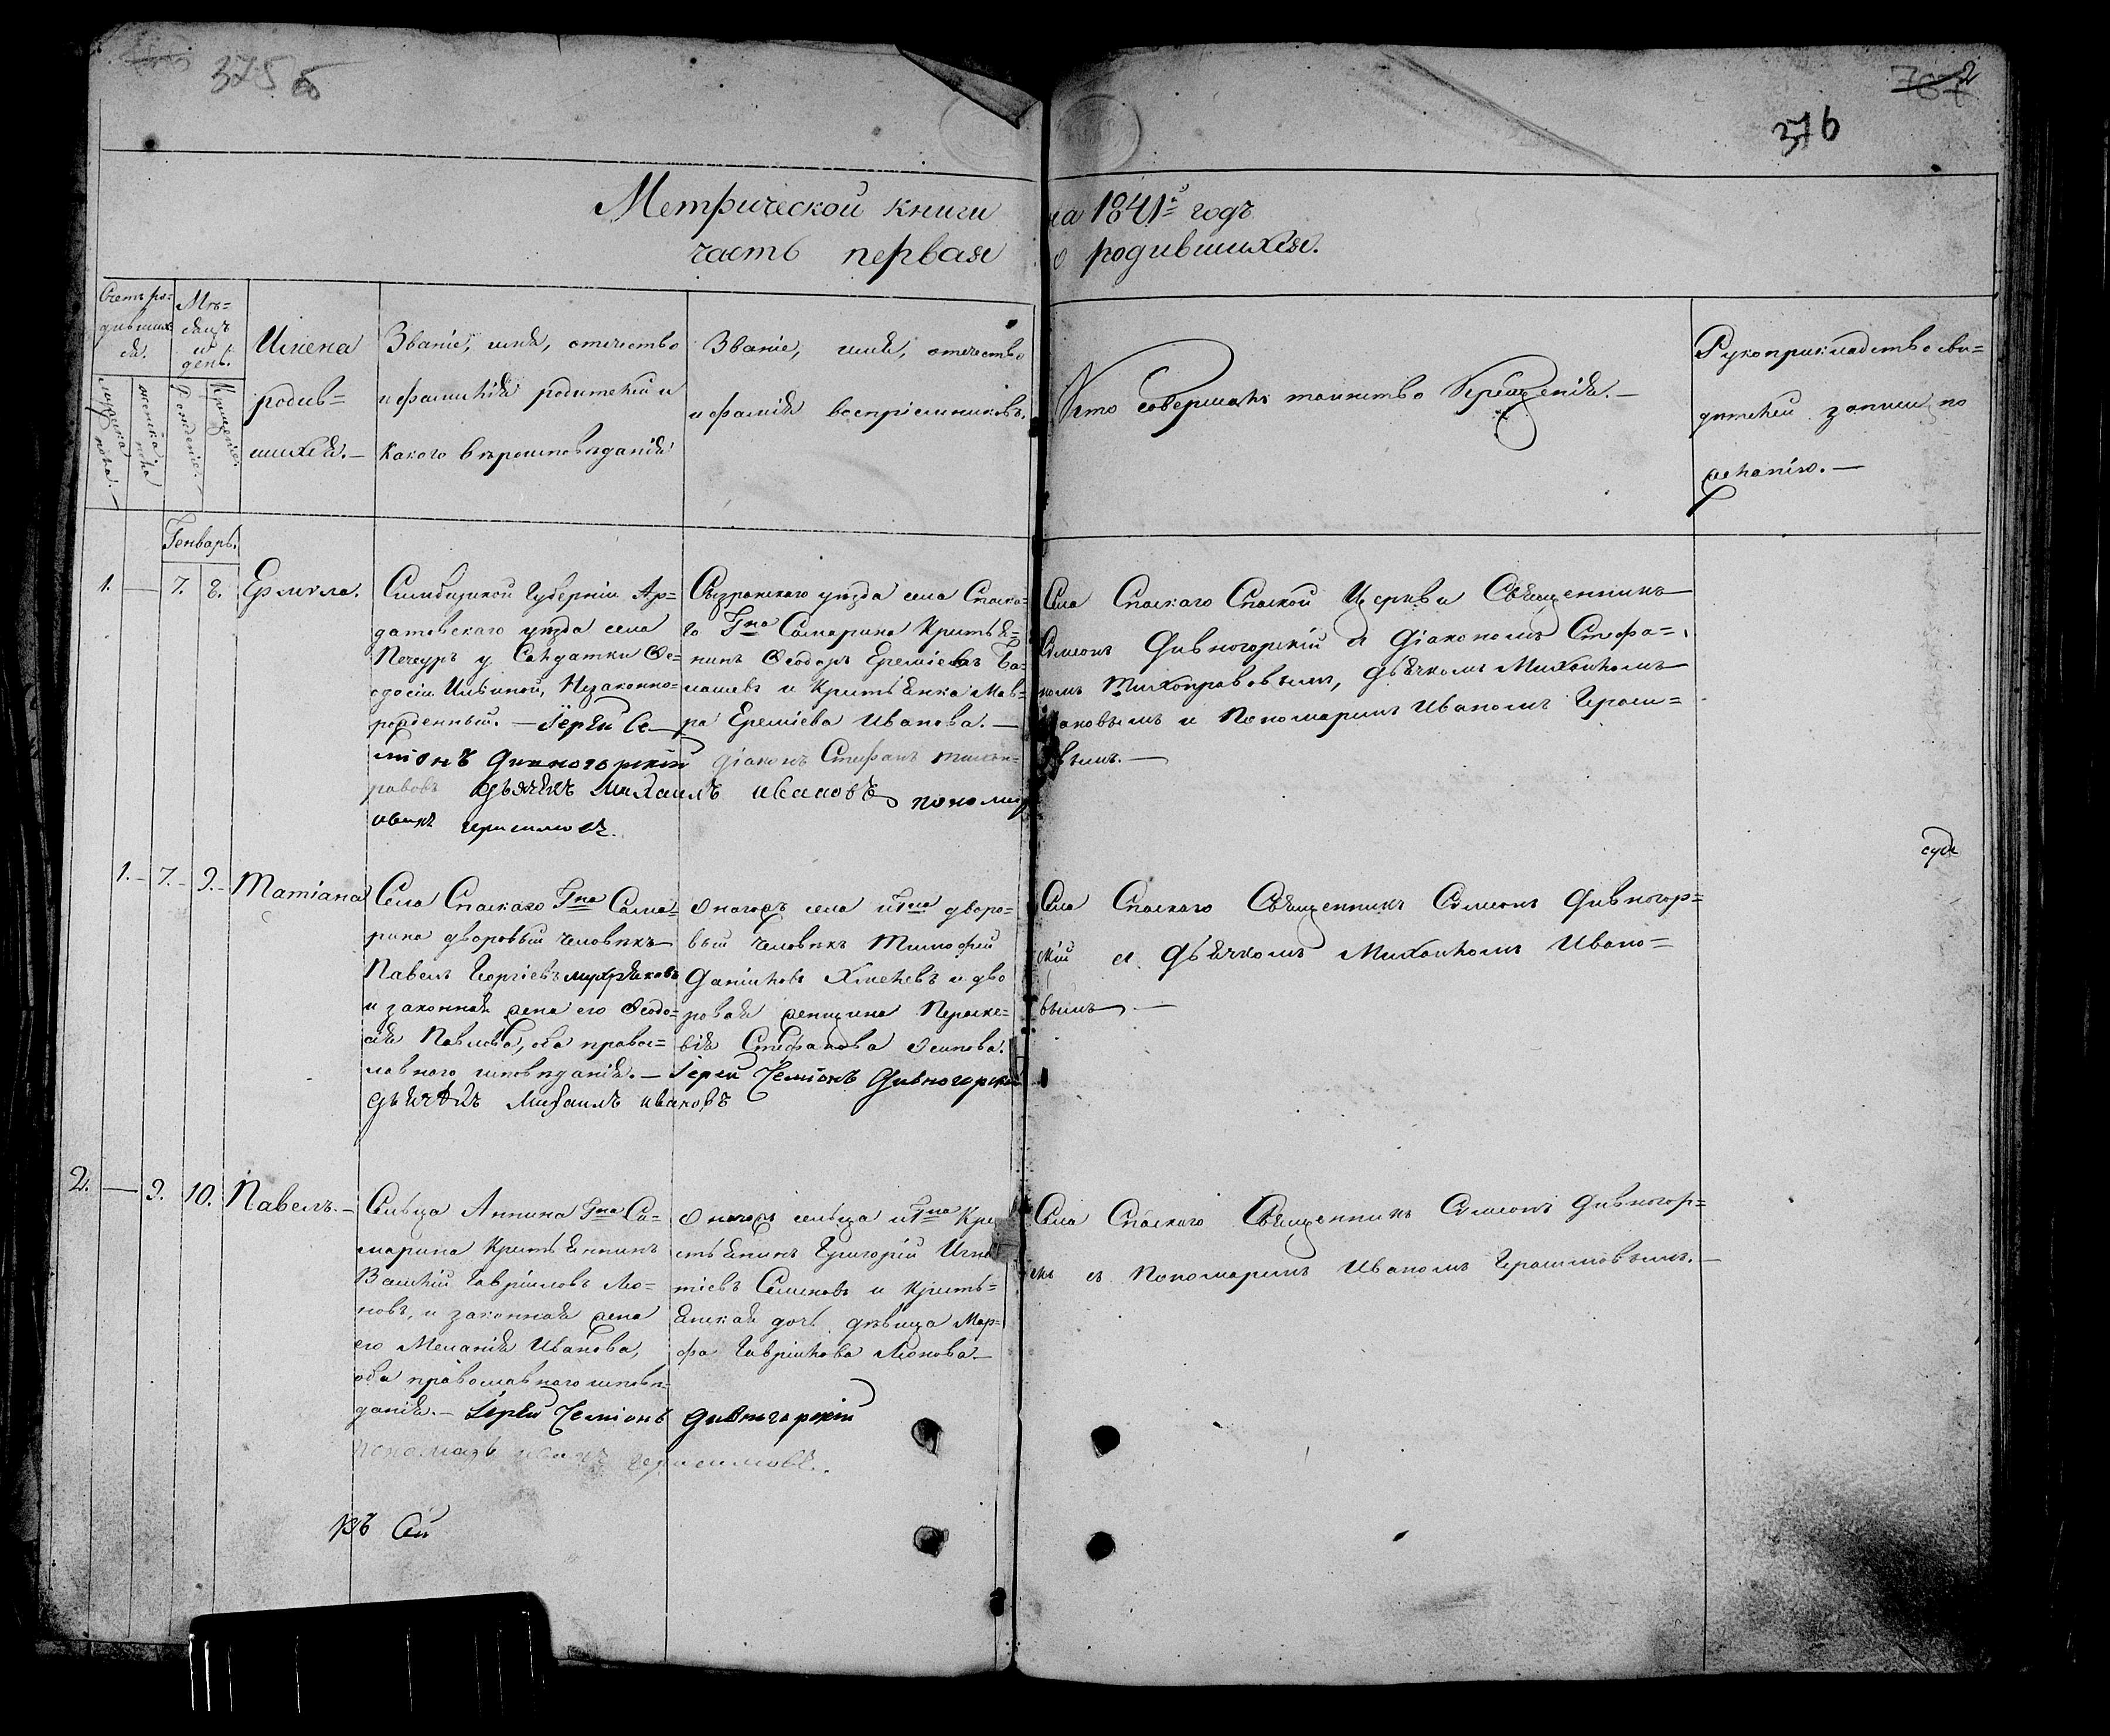 375 б
376
Метрической книги на 1841й годъ
часть первая о родившихся.
Счетъ ро=
дивших
ся.
мужеска
пола.
женска
пола
Мѣ=
сяцъ
и
день.
Рожденія.
Крещенія.
Имена
родив=
шихся.—
Званіе, имя, отечество
и фамилія родителей и
какого вѣроисповѣданія
Званіе, имя, отечество
и фамилія воспріемниковъ.
Кто совершалъ таинство Крещенія.—
Рукоприкладство сви=
дѣтелей записи по
желанію.—
Генварь.
1. — 7. 8. Ермила.
Симбирской Губерніи Ар=
датовскаго уѣзда села
Печеуръ у Салдатки Ѳе=
одосіи Ильиной, Незаконно=
рожденный. — Іерей Се
міонъ Дивногорскій діаконъ Стефанъ тихон=
равовъ дьячекъ Михаилъ ивановъ пономарь
иванъ герасимовъ.
Сызранскаго уѣзда села Спаска=
го Гна Самарина Крестья=
нинъ Ѳеодоръ Еремѣевъ Ба=
лашевъ и Крестьянка Мав=
ра Еремѣева Иванова. —
Села Спаскаго Спаской Церкви Священникъ
Симеонъ Дивногорскій съ Діакономъ Стефа=
номъ Тихонравовымъ, Дьячкомъ Михаиломъ
Ивановымъ и Пономаремъ Иваномъ Гераси=
мовымъ. —
1. — 7. — 9. — Татіана
Села Спаскаго Гна Сама=
рина дворовый человѣкъ
Павелъ Георгіевъ
и законная жена его Ѳеодо=
сія Павлова, оба правос=
лавнаго исповѣданія. — Іерей Семіонъ Дивногорскій
дьячекъ Михаилъ ивановъ
Онагожъ села и Гна дворо=
вый человѣкъ Тимофей
Даниловъ Хмелевъ и дво
ровая женщина Параске=
вія Стефанова Осипова.
Села Спаскаго Священникъ Симеонъ Дивногор=
скій съ Дьячкомъ Михаиломъ Ивано=
вымъ. —
2. — 9. 10. Павелъ. —
Сельца Аннина Гна Са=
марина Крестьянинъ
Василій Гавриловъ Ле=
новъ, и законная жена
его Меланія Иванова,
оба православнаго исповѣ=
данія. — Іерей Семіонъ Дивногорскій
пономарь иванъ герасимовъ.
Онагожъ сельца и Гна Кре
стьянинъ Григорій Игна
тіевъ Семеновъ и Кресть=
янская дочь дѣвица Мар=
фа Гаврилова Леонова —
Села Спаскаго Священникъ Симеонъ Дивногор=
скій съ Пономаремъ Иваномъ Герасимовымъ. —
къ Сей